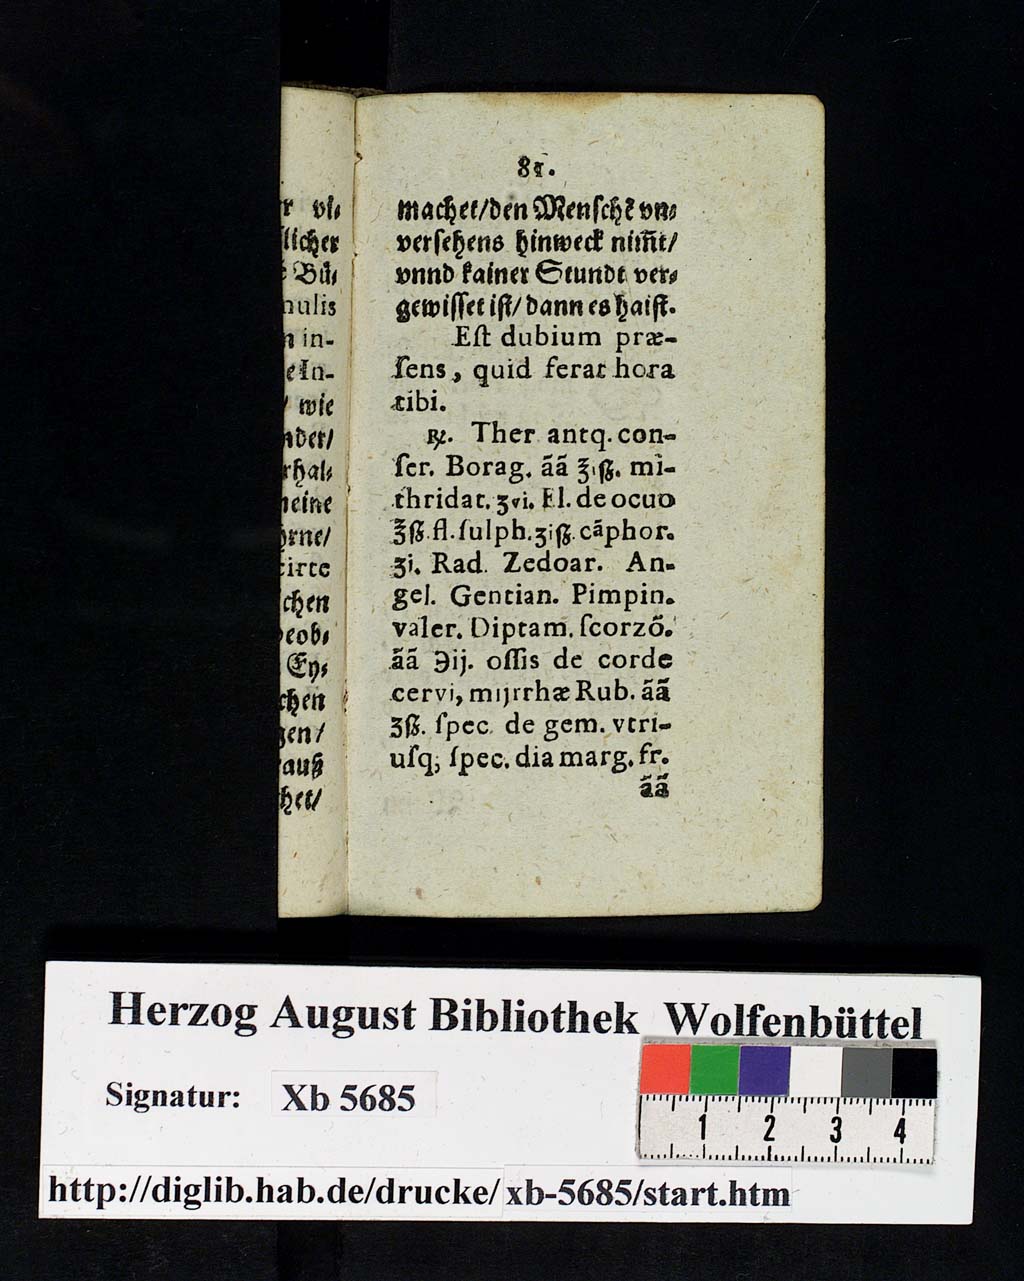 r vl⸗
licher
Bü⸗
nulis
n in-
e In-
/ wie
nder/
rhal⸗
neine
hrne/
cirte
chen
beob⸗
Ey⸗
chen
gen/
auß
het/
81.
machet/den Menschẽ vn⸗
versehens hinweck nim̃t/
vnnd kainer Stundt ver⸗
gewisset ist/dann es haist.
Eſt dubium præ-
ſens, quid ferat hora
tibi.
℞. Ther antq. con-
ſer. Borag. ãã ℥iß. mi-
thridat. ʒvi. El. de ocuo
℥ß. fl. ſulph. ʒiß. cãphor.
ʒi. Rad. Zedoar. An-
gel. Gentian. Pimpin.
valer. Diptam. ſcorzõ.
ãã ℈ij. oſſis de corde
cervi, mijrrhæ Rub. ãã
ʒß. ſpec. de gem. vtri-
uſq; ſpec. dia marg. fr.
ãã
Herzog August Bibliothek Wolfenbüttel
Signatur: Xb 5685
1 2 3 4
http://diglib.hab.de/drucke/xb-5685/start.htm